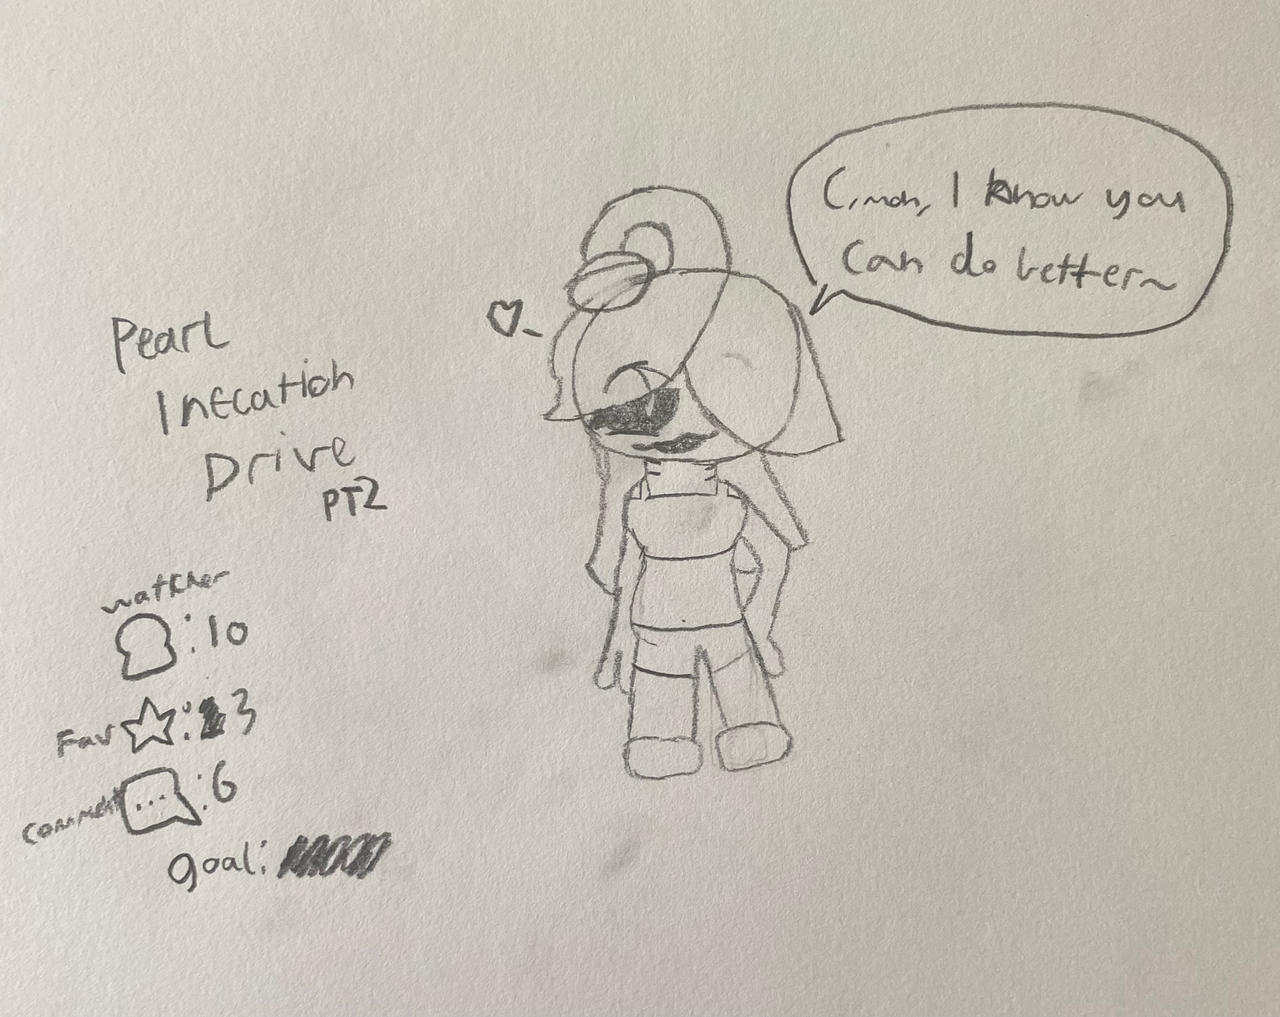 C'mon, I know you
can do better~
Pearl
Inflation
Drive
PT2
watcher
:10
Fav :3
comment :6
goal: